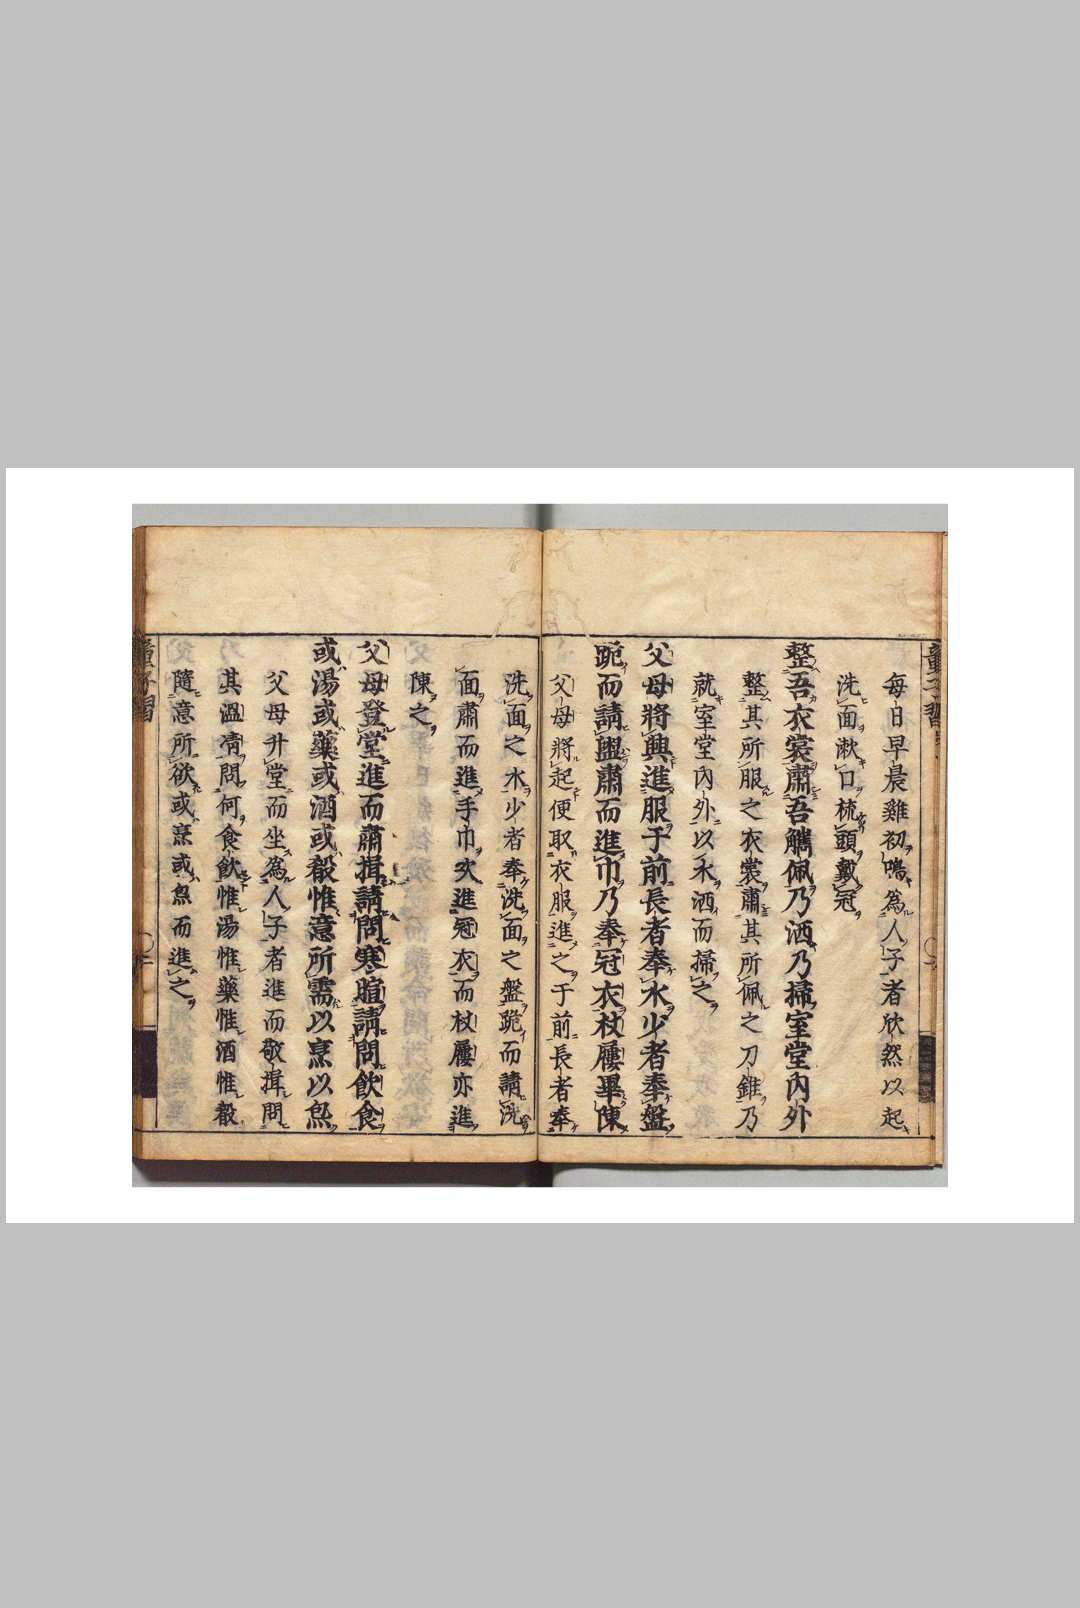 每日早晨雞初鳴為人子者欣然以起
洗面漱口梳頭戴冠
整吾衣裳肅吾觿佩乃洒乃掃室堂內外
整其所服之衣裳肅其所佩之刀錐乃
就室堂內外以水洒而掃之
父母將興進服于前長者奉水少者奉盤
跪而請盥肅而進巾乃奉冠衣杖屨畢陳
父母將起便取衣服進之于前長者奉
洗面之水少者奉洗面之盤跪而請洗
面肅而進手巾次進冠衣而杖屨亦進
陳之
父母登堂進而肅揖請問寒暄請問飲食
或湯或藥或酒或殽惟意所需以烹以炰
父母升堂而坐為人子者進而敬揖問
其溫凊問何食飲惟湯惟藥惟酒惟殽
隨意所欲或烹或炰而進之
童子習
二